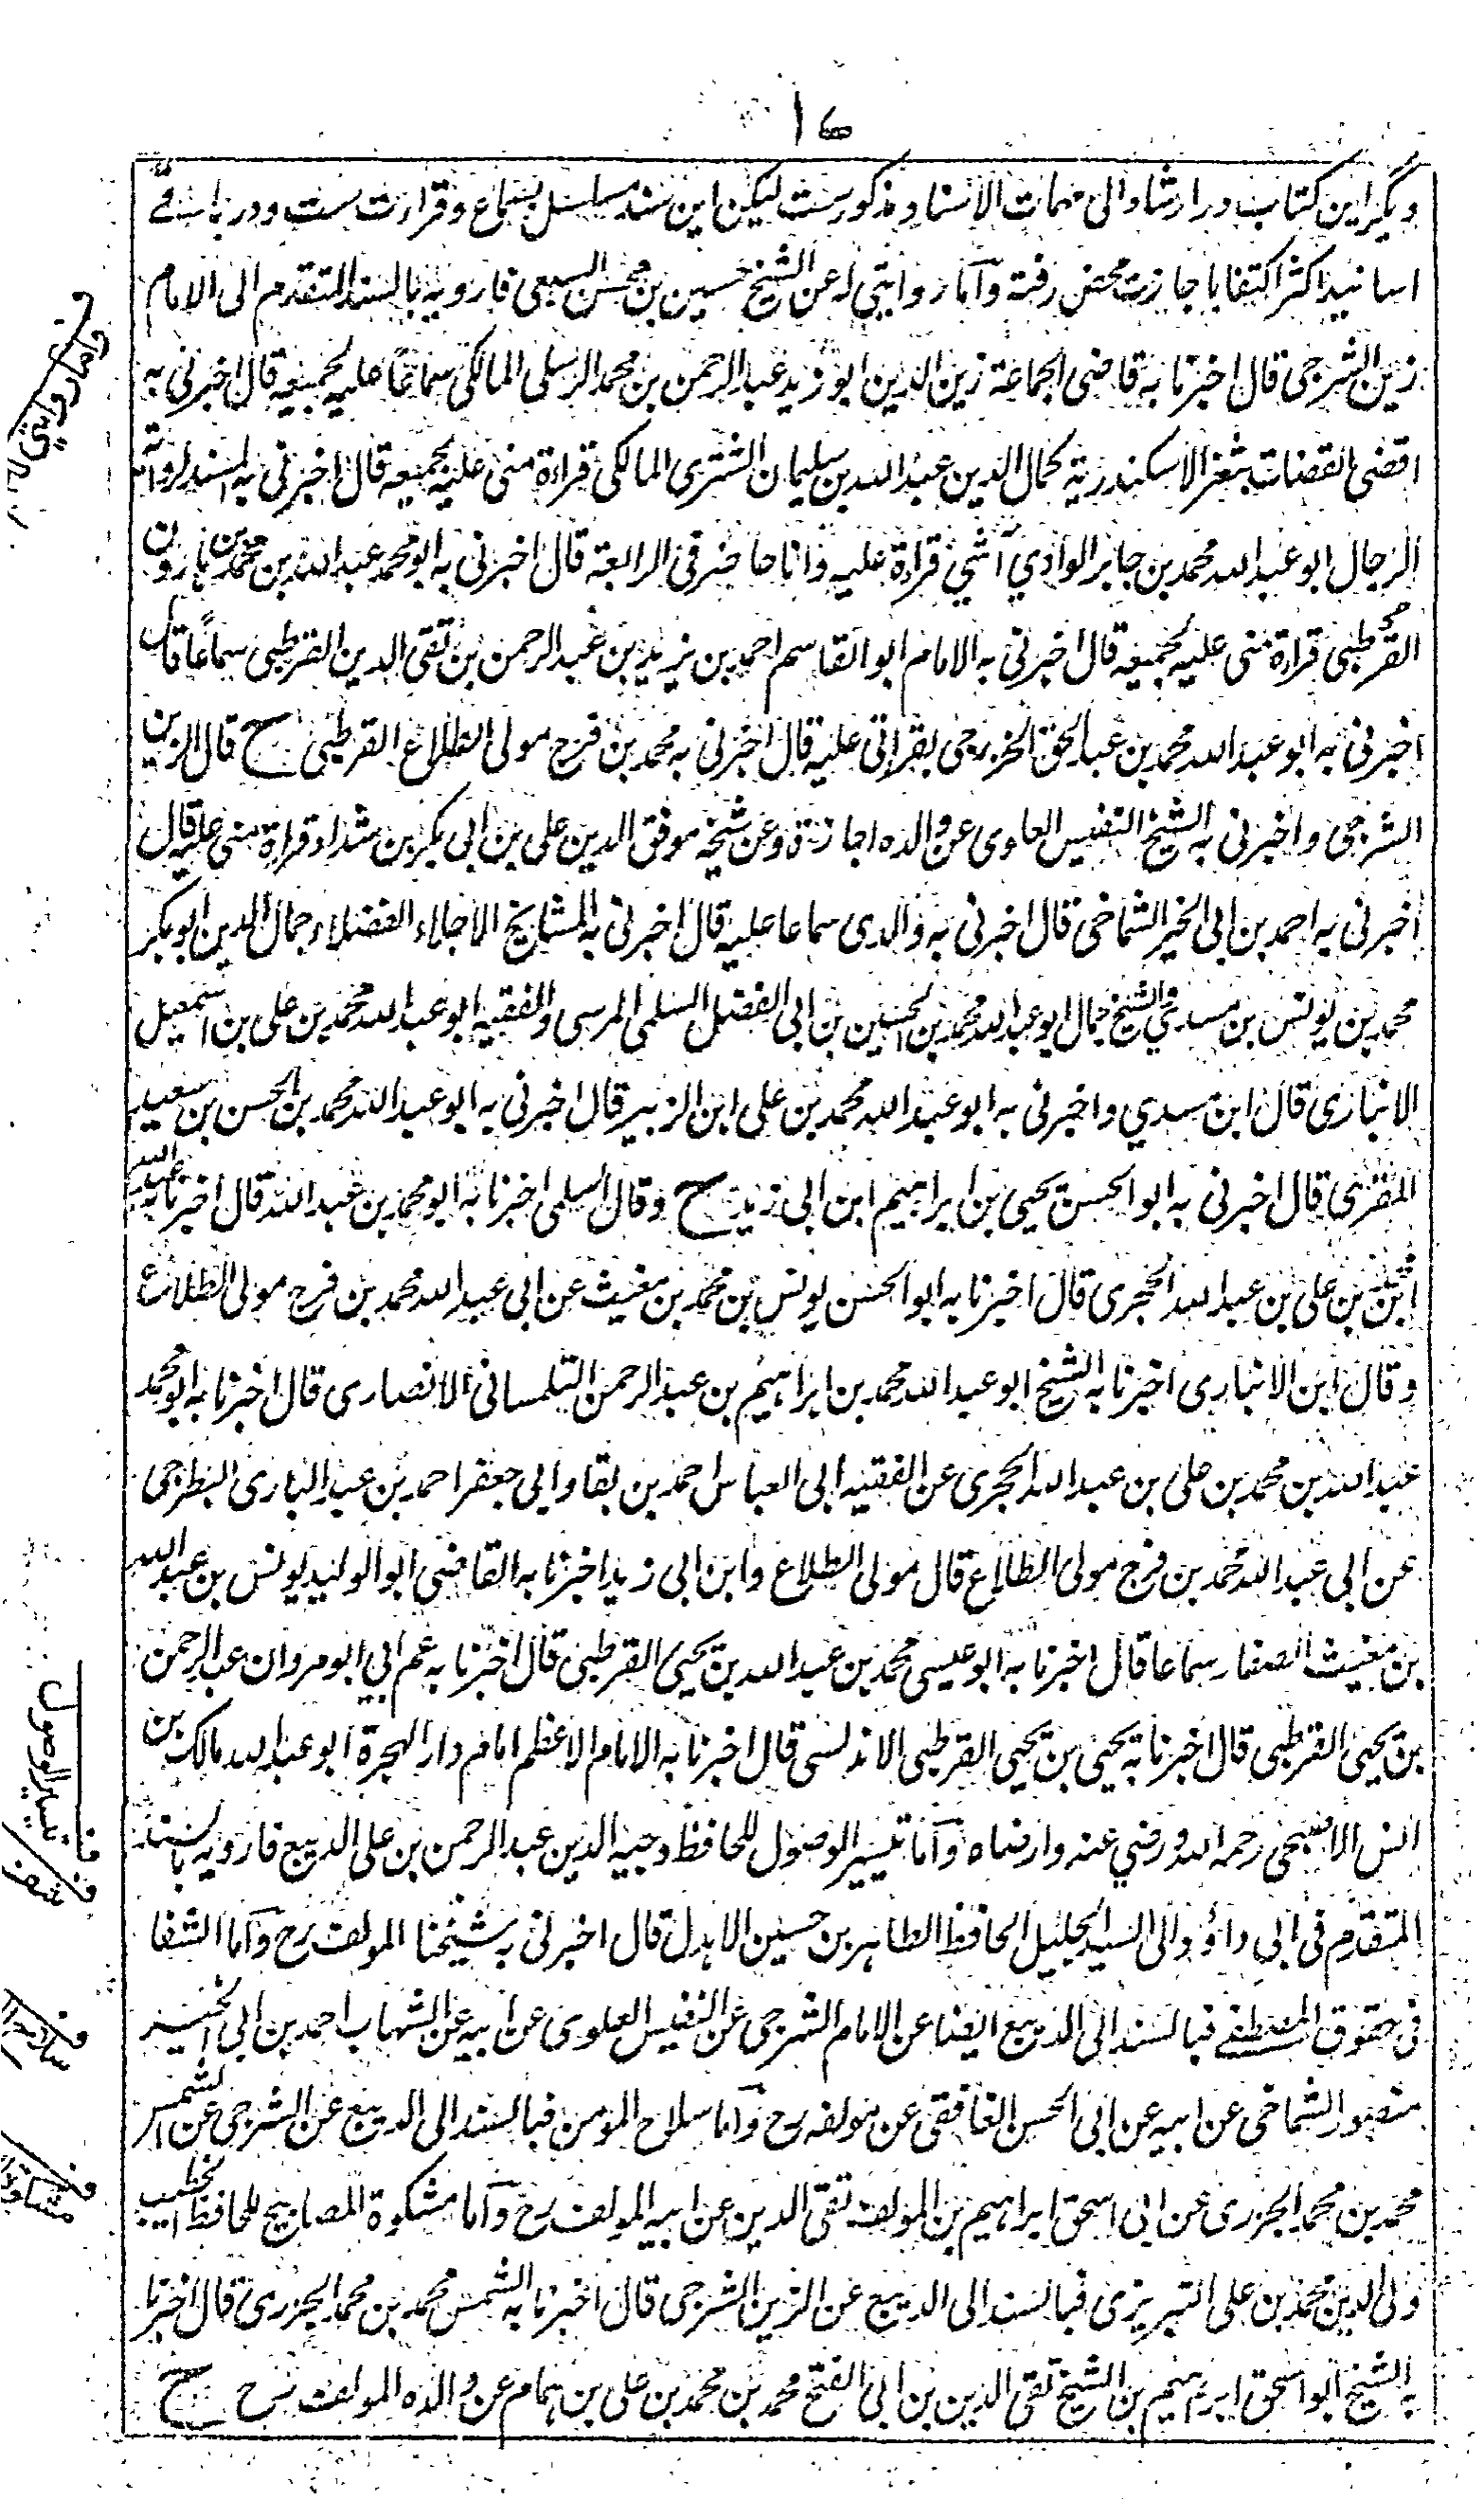 ١٦
دیگر این کتاب در ارشاد الی مهمات الاسناد مذکورست لیکن این سند مسلسل بسماع و قراءت ست و در باقے
اسانید اکثر اکتفا باجازت محض رفته و آما روایتی له عن الشیخ حسین بن محسن السبعی فارویه بالسند المتقدم الی الامام
زین الشرجی قال اخبرنا به قاضی الجماعة زین الدین ابو زید عبد الرحمن بن محمد الرسلی المالکی سماعًا علیه لجمیعه قال اخبرنی به
اقضی القضات بثغر الاسکندریة کمال الدین عبد الله بن سلیمان الشتری المالکی قراءة منی علیه لجمیعه قال اخبرنی به المسند لرواته
الرجال ابو عبد الله محمد بن جابر الوادی آشی قراءة علیه و انا حاضر فی الرابعة قال اخبرنی به ابو محمد عبد الله بن محمد بن هارون
القرطبی قراءة منی علیه لجمیعه قال اخبرنی به الامام ابو القاسم احمد بن یزید بن عبد الرحمن بن تقی الدین القرطبی سماعًا قال
اخبرنی به ابو عبد الله محمد بن عبد الحق الخزرجی بقراتی علیه قال اخبرنی به محمد بن فرح مولی الطلاع القرطبی ح قال الزین
الشرجی و اخبرنی به الشیخ النفیس العلوی عن والده اجازة و عن شیخه موفق الدین علی بن ابی بکر بن شداد قراءة منی علیه قال
اخبرنی به احمد بن ابی الخیر الشماخی قال اخبرنی به والدی سماعا علیه قال اخبرنی به المشایخ الاجلاء الفضلاء جمال الدین ابو بکر
محمد بن یونس بن مسدی و الشیخ جمال ابو عبد الله محمد بن الحسین بن ابی الفضل السلمی المرسی و الفقیه ابو عبد الله محمد بن علی بن اسمعیل
الانباری قال ابن مسدی و اخبرنی به ابو عبد الله محمد بن علی ابن الزبیر قال اخبرنی به ابو عبد الله محمد بن الحسن بن سعید
المقری قال اخبرنی به ابو الحسن یحیی بن ابراهیم ابن ابی زید ح و قال السلمی اخبرنا به ابو محمد بن عبد الله قال اخبرنا به عبد الله
بن علی بن عبد الله الحجری قال اخبرنا به ابو الحسن یونس بن محمد بن مغیث عن ابی عبد الله محمد بن فرح مولی الطلاع
و قال ابن الانباری اخبرنا به الشیخ ابو عبد الله محمد بن ابراهیم بن عبد الرحمن التلمسانی الانصاری قال اخبرنا به ابو محمد
عبد الله بن محمد بن علی بن عبد الله الحجری عن الفقیه ابی العباس احمد بن بقا و ابی جعفر احمد بن عبد الباری البطرجی
عن ابی عبد الله محمد بن فرج مولی الطلاع قال مولی الطلاع و ابن ابی زید اخبرنا به القاضی ابو الولید یونس بن عبد الله
بن مغیث الصفار سماعا قال اخبرنا به ابو عیسی محمد بن عبد الله بن یحیی القرطبی قال اخبرنا به عم ابی ابو مروان عبد الرحمن
بن یحیی القرطبی قال اخبرنا به یحیی بن یحیی القرطبی الاندلسی قال اخبرنا به الامام الاعظم امام دار الهجرة ابو عبد الله مالک بن
انس الاصبحی رحمه الله و رضی عنه و ارضاه و آما تیسیر الوصول للحافظ وجیه الدین عبد الرحمن بن علی الدیبع فارویه بالسند
المتقدم فی ابی داؤد الی السید الجلیل الحافظ الطاهر بن حسین الاهدل قال اخبرنی به شیخنا المولف رح و آما الشفا
فی حقوق المصطفے فبالسند الی الدیبع ایضا عن الامام الشرجی عن النفیس العلوی عن ابیه عن الشهاب احمد بن ابی الخیر
منصور الشماخی عن ابیه عن ابی الحسن الغافقی عن مولفه رح و آما سلاح المومن فبالسند الی الدیبع عن الشرجی عن الشمس
محمد بن محمد الجزری عن ابی اسحق ابراهیم بن المولف تقی الدین عن ابیه المولف رح و آما مشکوة المصابیح للحافظ الخطیب
ولی الدین محمد بن علی التبریزی فبالسند الی الدیبع عن الزین الشرجی قال اخبرنا به الشمس محمد بن محمد الجزری قال اخبرنا
به الشیخ ابو اسحق ابرهیم بن الشیخ تقی الدین بن ابی الفتح محمد بن محمد بن علی بن همام عن والده المولف رح ح
و اما روایتی
تیسیر الوصول
شفا